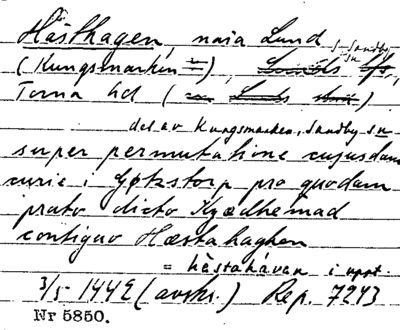 Hästhagen, nära Lund
S. Sandby sn
(Kungsmarken =),
Torna hd (
del av Kungsmarken, Sandby sn
super permutatione cujusdam
curie i Gøtkstorp pro quodam
prato dicto Kyædhemad
contiguo Hæstahaghen
= hästahåvan i uppt.
3/5 1442 (avskr.) Rep. 7243
Nr 5850.